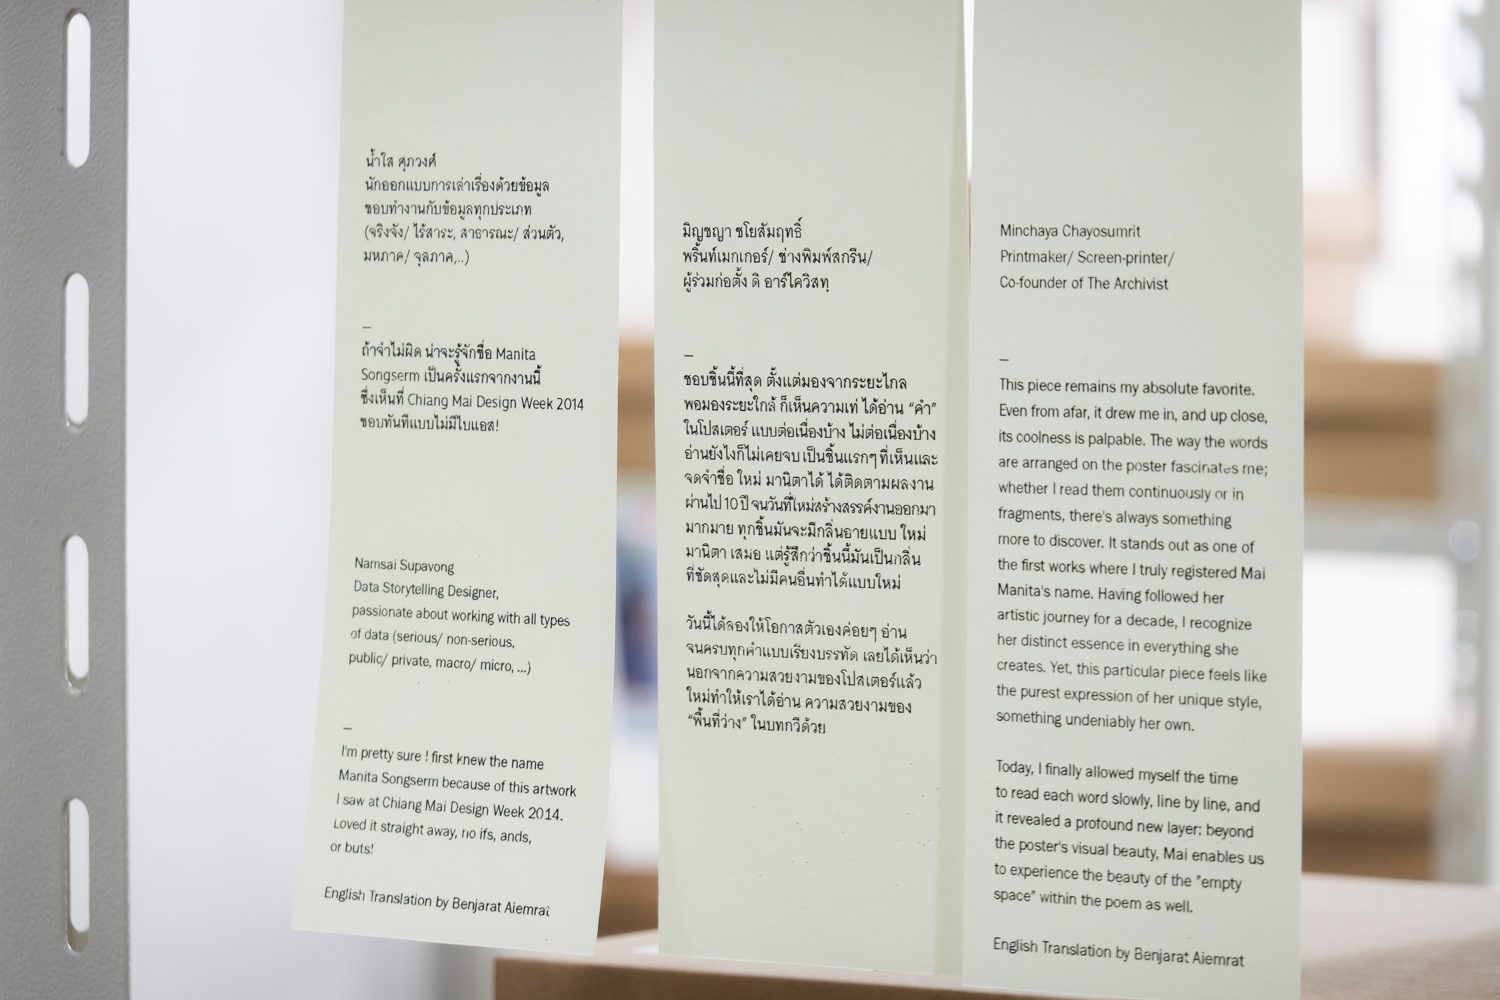 น้ำใส ศุภวงศ์
นักออกแบบการเล่าเรื่องด้วยข้อมูล
ชอบทำงานกับข้อมูลทุกประเภท
(จริงจัง/ ไร้สาระ, สาธารณะ/ ส่วนตัว,
มหภาค/ จุลภาค,..)
–
ถ้าจำไม่ผิด น่าจะรู้จักชื่อ Manita
Songserm เป็นครั้งแรกจากงานนี้
ซึ่งเห็นที่ Chiang Mai Design Week 2014
ชอบทันทีแบบไม่มีไบแอส!
Namsai Supavong
Data Storytelling Designer,
passionate about working with all types
of data (serious/ non-serious,
public/ private, macro/ micro, ...)
–
I'm pretty sure I first knew the name
Manita Songserm because of this artwork
I saw at Chiang Mai Design Week 2014.
Loved it straight away, no ifs, ands,
or buts!
English Translation by Benjarat Aiemrat
มิญชญา ชโยสัมฤทธิ์
พริ้นท์เมกเกอร์/ ช่างพิมพ์สกรีน/
ผู้ร่วมก่อตั้ง ดิ อาร์ไควิสทฺ
–
ชอบชิ้นนี้ที่สุด ตั้งแต่มองจากระยะไกล
พอมองระยะใกล้ ก็เห็นความเท่ ได้อ่าน “คำ”
ในโปสเตอร์ แบบต่อเนื่องบ้าง ไม่ต่อเนื่องบ้าง
อ่านยังไงก็ไม่เคยจบ เป็นชิ้นแรกๆ ที่เห็นและ
จดจำชื่อ ใหม่ มานิตาได้ ได้ติดตามผลงาน
ผ่านไป 10 ปี จนวันที่ใหม่สร้างสรรค์งานออกมา
มากมาย ทุกชิ้นมันจะมีกลิ่นอายแบบ ใหม่
มานิตา เสมอ แต่รู้สึกว่าชิ้นนี้มันเป็นกลิ่น
ที่ชัดสุดและไม่มีคนอื่นทำได้แบบใหม่
วันนี้ได้ลองให้โอกาสตัวเองค่อยๆ อ่าน
จนครบทุกคำแบบเรียงบรรทัด เลยได้เห็นว่า
นอกจากความสวยงามของโปสเตอร์แล้ว
ใหม่ทำให้เราได้อ่าน ความสวยงามของ
“พื้นที่ว่าง” ในบทกวีด้วย
Minchaya Chayosumrit
Printmaker/ Screen-printer/
Co-founder of The Archivist
–
This piece remains my absolute favorite.
Even from afar, it drew me in, and up close,
its coolness is palpable. The way the words
are arranged on the poster fascinates me;
whether I read them continuously or in
fragments, there's always something
more to discover. It stands out as one of
the first works where I truly registered Mai
Manita's name. Having followed her
artistic journey for a decade, I recognize
her distinct essence in everything she
creates. Yet, this particular piece feels like
the purest expression of her unique style,
something undeniably her own.
Today, I finally allowed myself the time
to read each word slowly, line by line, and
it revealed a profound new layer: beyond
the poster's visual beauty, Mai enables us
to experience the beauty of the "empty
space" within the poem as well.
English Translation by Benjarat Aiemrat